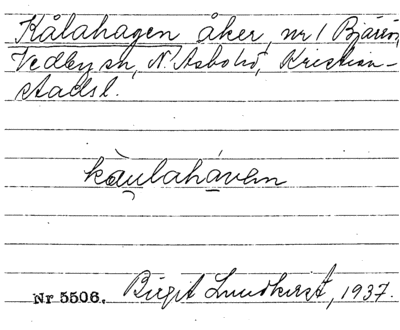 Kålahagen åker, nr 1 Bjäred,
Vedby sn, N. Åsbo hd, Kristian-
stadsl.
kàu̯lahávɘn
Nr 5506. Birgit Lundkvist, 1937.